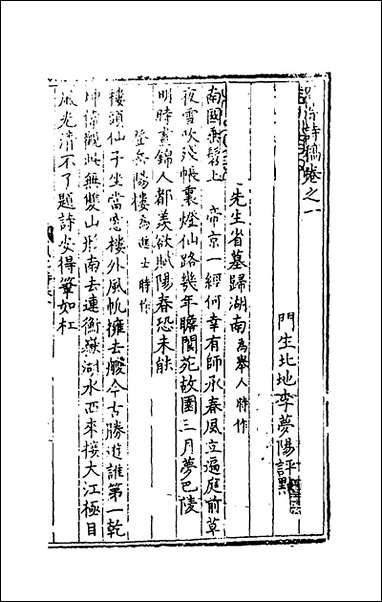 石淙詩稿卷之一
門生北地李夢陽評
先生省墓歸湖南為舉人時作
南國垂髫上帝京一經何幸有師承春風立遍庭前草
夜雪吹殘帳裏燈仙路幾年瞻閬苑故園三月夢巴陵
明時晝錦人都羨欲賦陽春恐未能
登岳陽樓為進士時作
樓頭仙子坐當窓樓外風帆擁去艭今古勝遊誰第一乾
坤偉觀此無雙山形南去連衡嶽湖水西來接大江極目
風光清不了題詩安得筆如杠